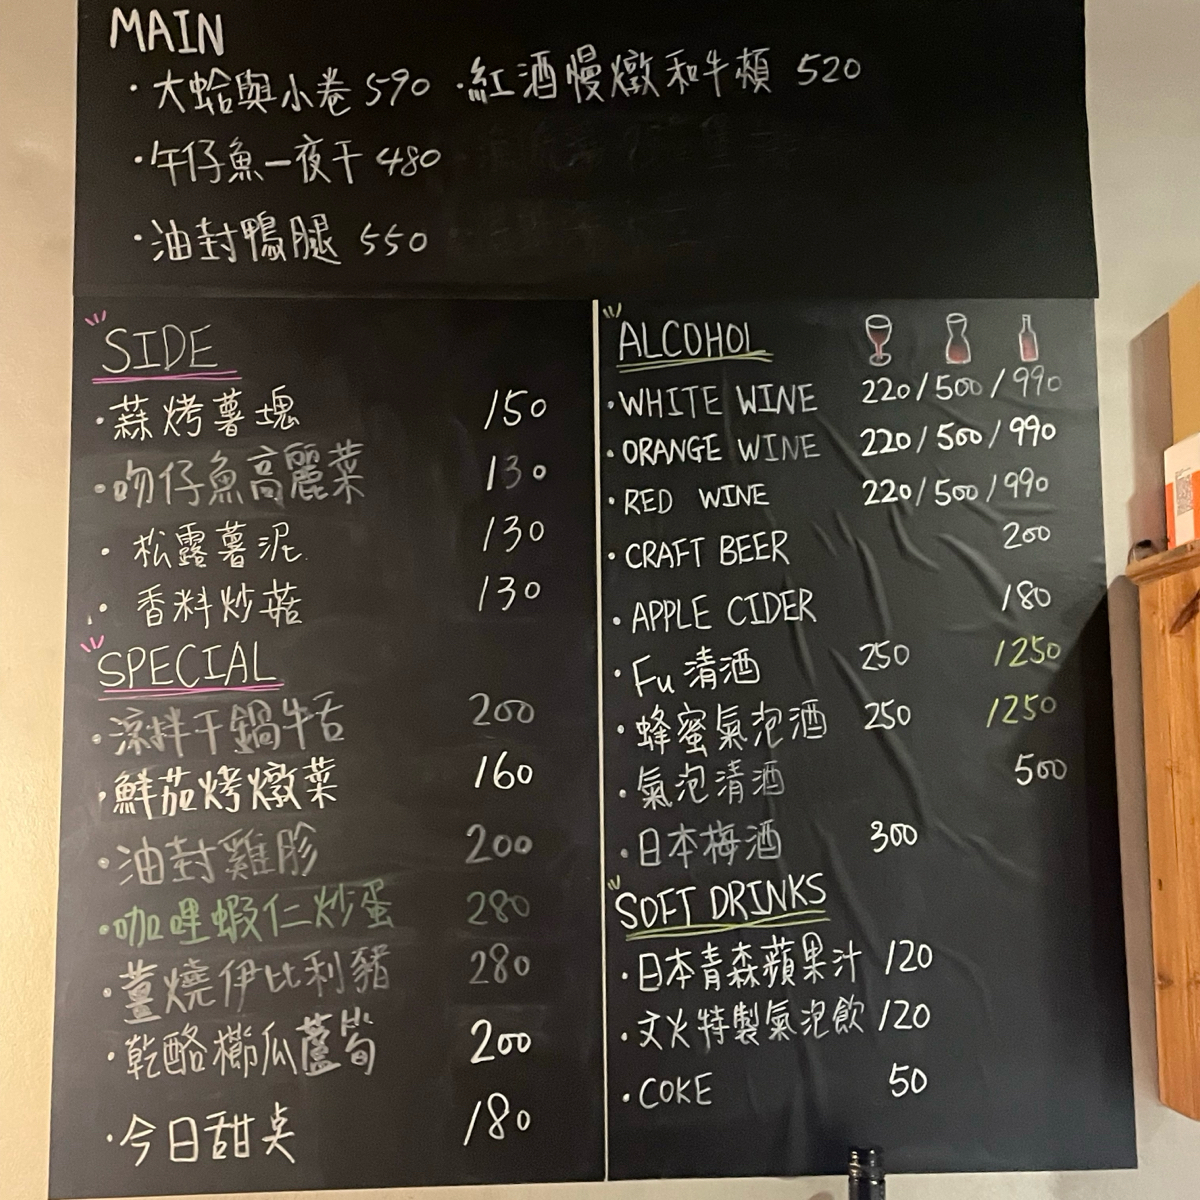 MAIN
·大蛤與小卷 590 ·紅酒慢燉和牛頰 520
·午仔魚一夜干 480
·油封鴨腿 550
SIDE
·蒜烤薯塊 150
·吻仔魚高麗菜 130
·松露薯泥 130
·香料炒菇 130
SPECIAL
·涼拌干鍋牛舌 200
·鮮茄烤燉菜 160
·油封雞胗 200
·咖哩蝦仁炒蛋 280
·薑燒伊比利豬 280
·乾酪櫛瓜蘆筍 200
·今日甜点 180
ALCOHOL
·WHITE WINE 220/500/990
·ORANGE WINE 220/500/990
·RED WINE 220/500/990
·CRAFT BEER 200
·APPLE CIDER 180
·Fu 清酒 250 1250
·蜂蜜氣泡酒 250 1250
·氣泡清酒 500
·日本梅酒 300
SOFT DRINKS
·日本青森蘋果汁 120
·文火特製氣泡飲 120
·COKE 50